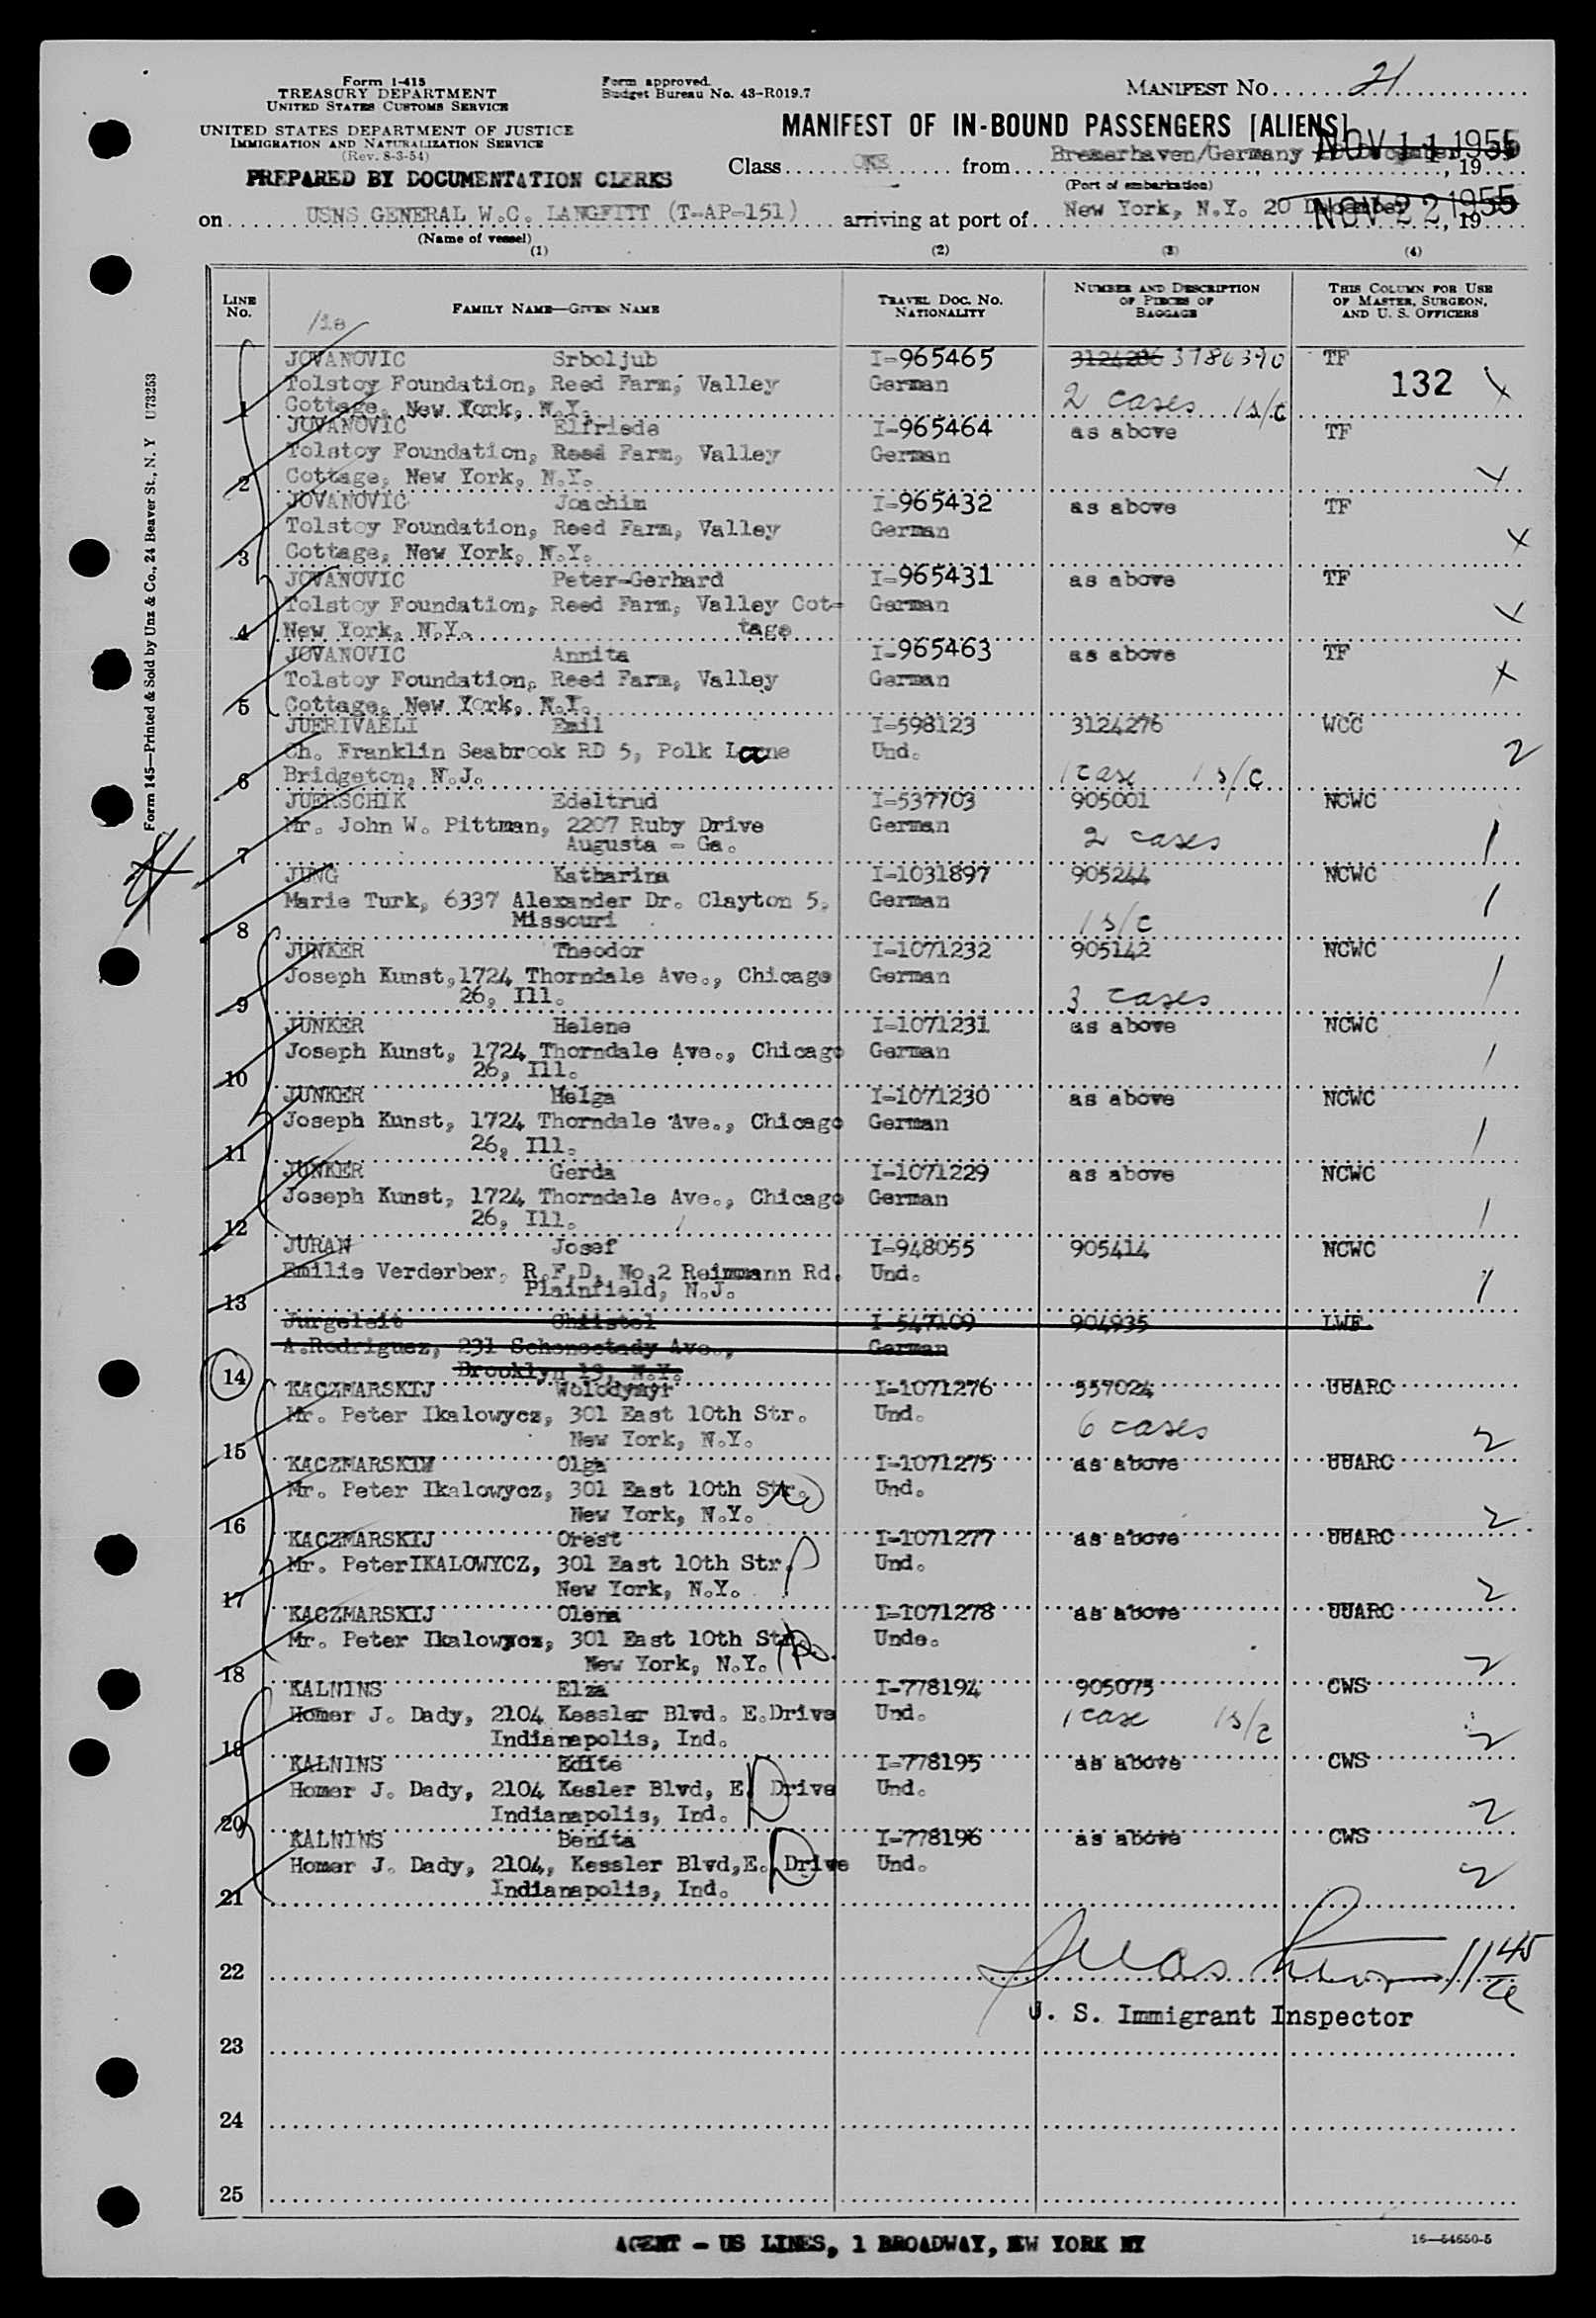 Form I-415
TREASURY DEPARTMENT
UNITED STATES CUSTOMS SERVICE
Form approved.
Budget Bureau No. 43-R019.7
MANIFEST NO. 21
UNITED STATES DEPARTMENT OF JUSTICE
IMMIGRATION AND NATURALIZATION SERVICE
(Rev. 8-3-54)
MANIFEST OF IN-BOUND PASSENGERS [ALIENS]
NOV 11 1955
PREPARED BY DOCUMENTATION CLERKS
Class ONE from Bremerhaven/Germany, 19
(Port of embarkation)
on USNS GENERAL W.C. LANGFITT (T-AP-151) arriving at port of New York, N.Y. 20 December, 19
NOV 22 1955
(Name of vessel)
(1) (2) (3) (4)
LINE No. FAMILY NAME—GIVEN NAME TRAVEL DOC. NO. NATIONALITY NUMBER AND DESCRIPTION OF PIECES OF BAGGAGE THIS COLUMN FOR USE OF MASTER, SURGEON, AND U. S. OFFICERS
JOVANOVIC Srboljub I-965465 3124286 3186390 TF
Tolstoy Foundation, Reed Farm, Valley German 132 X
1 Cottage, New York, N.Y. 2 cases 1 s/c
JOVANOVIC Elfriede I-965464 as above TF
Tolstoy Foundation, Reed Farm, Valley German
2 Cottage, New York, N.Y. X
JOVANOVIC Joachim I-965432 as above TF
Tolstoy Foundation, Reed Farm, Valley German
3 Cottage, New York, N.Y. X
JOVANOVIC Peter-Gerhard I-965431 as above TF
Tolstoy Foundation, Reed Farm, Valley Cot- German X
4 New York, N.Y. tage
JOVANOVIC Annita I-965463 as above TF
Tolstoy Foundation, Reed Farm, Valley German X
5 Cottage, New York, N.Y.
JUERIVAELI Emil I-598123 3124276 WCC
Ch. Franklin Seabrook RD 5, Polk Lane Und. 2
6 Bridgeton, N.J. 1 case 1 s/c
JUERSCHIK Edeltrud I-537703 905001 NCWC
Mr. John W. Pittman, 2207 Ruby Drive German 2 cases 1
7 Augusta - Ga.
JUNG Katharina I-1031897 905244 NCWC
Marie Turk, 6337 Alexander Dr. Clayton 5, German 1
8 Missouri 1 s/c
JUNKER Theodor I-1071232 905142 NCWC
Joseph Kunst, 1724 Thorndale Ave., Chicago German 1
9 26, Ill. 3 cases
JUNKER Helene I-1071231 as above NCWC
Joseph Kunst, 1724 Thorndale Ave., Chicago German 1
10 26, Ill.
JUNKER Helga I-1071230 as above NCWC
Joseph Kunst, 1724 Thorndale Ave., Chicago German 1
11 26, Ill.
JUNKER Gerda I-1071229 as above NCWC
Joseph Kunst, 1724 Thorndale Ave., Chicago German 1
12 26, Ill.
JURAN Josef I-948055 905414 NCWC
Emilie Verderber, R.F.D. No.2 Reinmann Rd. Und. 1
13 Plainfield, N.J.
Jurgeleit I-547109 904935 LWF.
A.Rodriguez, 231 Schenectady Ave., German
14 Brooklyn 13, N.Y.
KACZMARSKIJ Wolodymyr I-1071276 557024 UUARC
Mr. Peter Ikalowycz, 301 East 10th Str. Und. 6 cases 2
15 New York, N.Y.
KACZMARSKIW Olga I-1071275 as above UUARC
Mr. Peter Ikalowycz, 301 East 10th Str. Und.
16 New York, N.Y. 2
KACZMARSKIJ Orest I-1071277 as above UUARC
Mr. PeterIKALOWYCZ, 301 East 10th Str. Und.
17 New York, N.Y. 2
KACZMARSKIJ Olena I-1071278 as above UUARC
Mr. Peter Ikalowycz, 301 East 10th Str. Unde.
18 New York, N.Y. 2
KALNINS Elza I-778194 905075 CWS
Homer J. Dady, 2104 Kessler Blvd. E.Drive Und. 1 case 1 s/c
19 Indianapolis, Ind. 2
KALNINS Edite I-778195 as above CWS
Homer J. Dady, 2104 Kesler Blvd, E. Drive Und.
20 Indianapolis, Ind. 2
KALNINS Benita I-778196 as above CWS
Homer J. Dady, 2104, Kessler Blvd,E. Drive Und. 2
21 Indianapolis, Ind.
22 11 45
U. S. Immigrant Inspector
23
24
25
AGENT - US LINES, 1 BROADWAY, NEW YORK NY
16—54650-5
Form 145—Printed & Sold by Unz & Co., 24 Beaver St., N. Y U73253